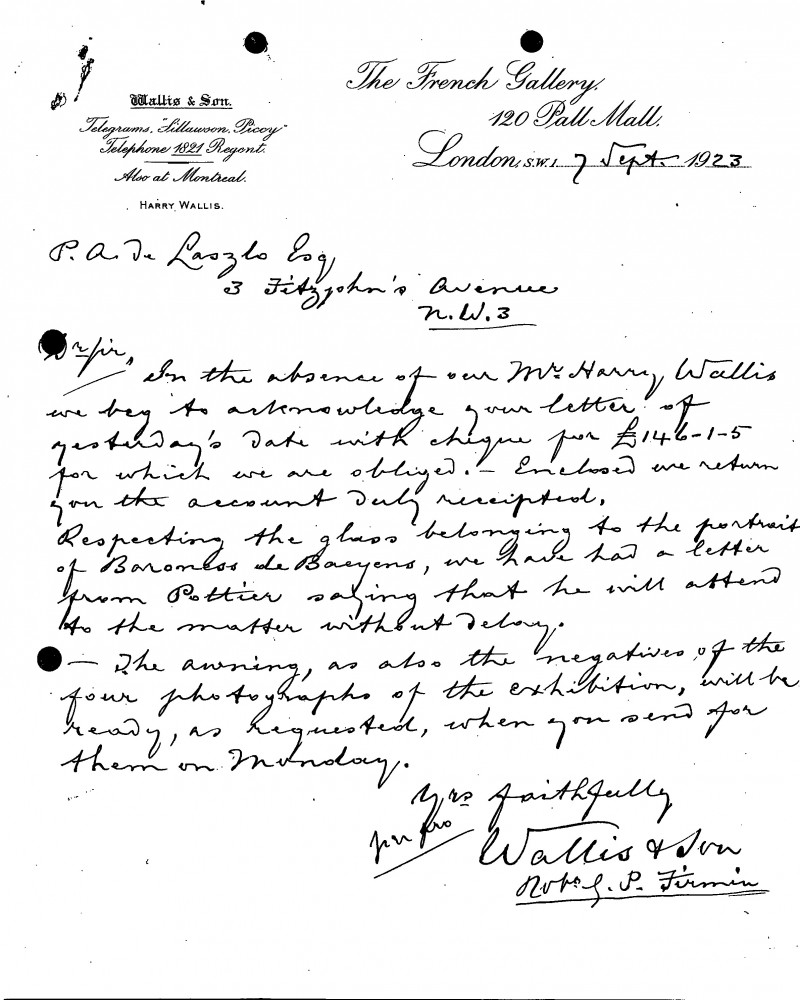 Wallis & Son.
Telegrams, "Littawson, Piccy"
Telephone 1821 Regent.
Also at Montreal.
HARRY WALLIS.
The French Gallery.
120 Pall Mall.
London, S.W.1. 7 Sept. 1923
P. A. de Laszlo Esq,
3 Fitzjohn's Avenue
N.W.3
Dr Sir,
In the absence of our Mr. Harry Wallis
we beg to acknowledge your letter of
yesterday's date with cheque for £146-1-5
for which we are obliged. - Enclosed we return
you the account duly receipted.
Respecting the glass belonging to the portrait
of Baroness de Baeyens, we have had a letter
from Pottier saying that he will attend
to the matter without delay.
- The awning, as also the negatives of the
four photographs of the exhibition, will be
ready, as requested, when you send for
them on Monday.
Yrs faithfully
per pro Wallis & Son
G. P. Firmin